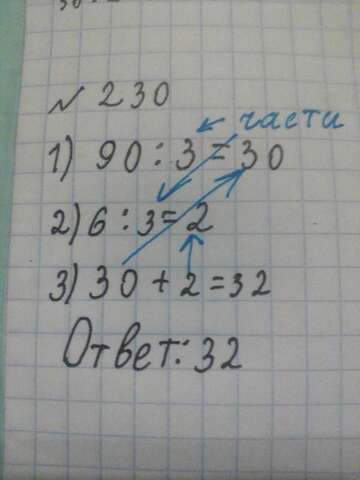 № 230
части
1) 90 : 3 = 30
2) 6 : 3 = 2
3) 30 + 2 = 32
Ответ: 32